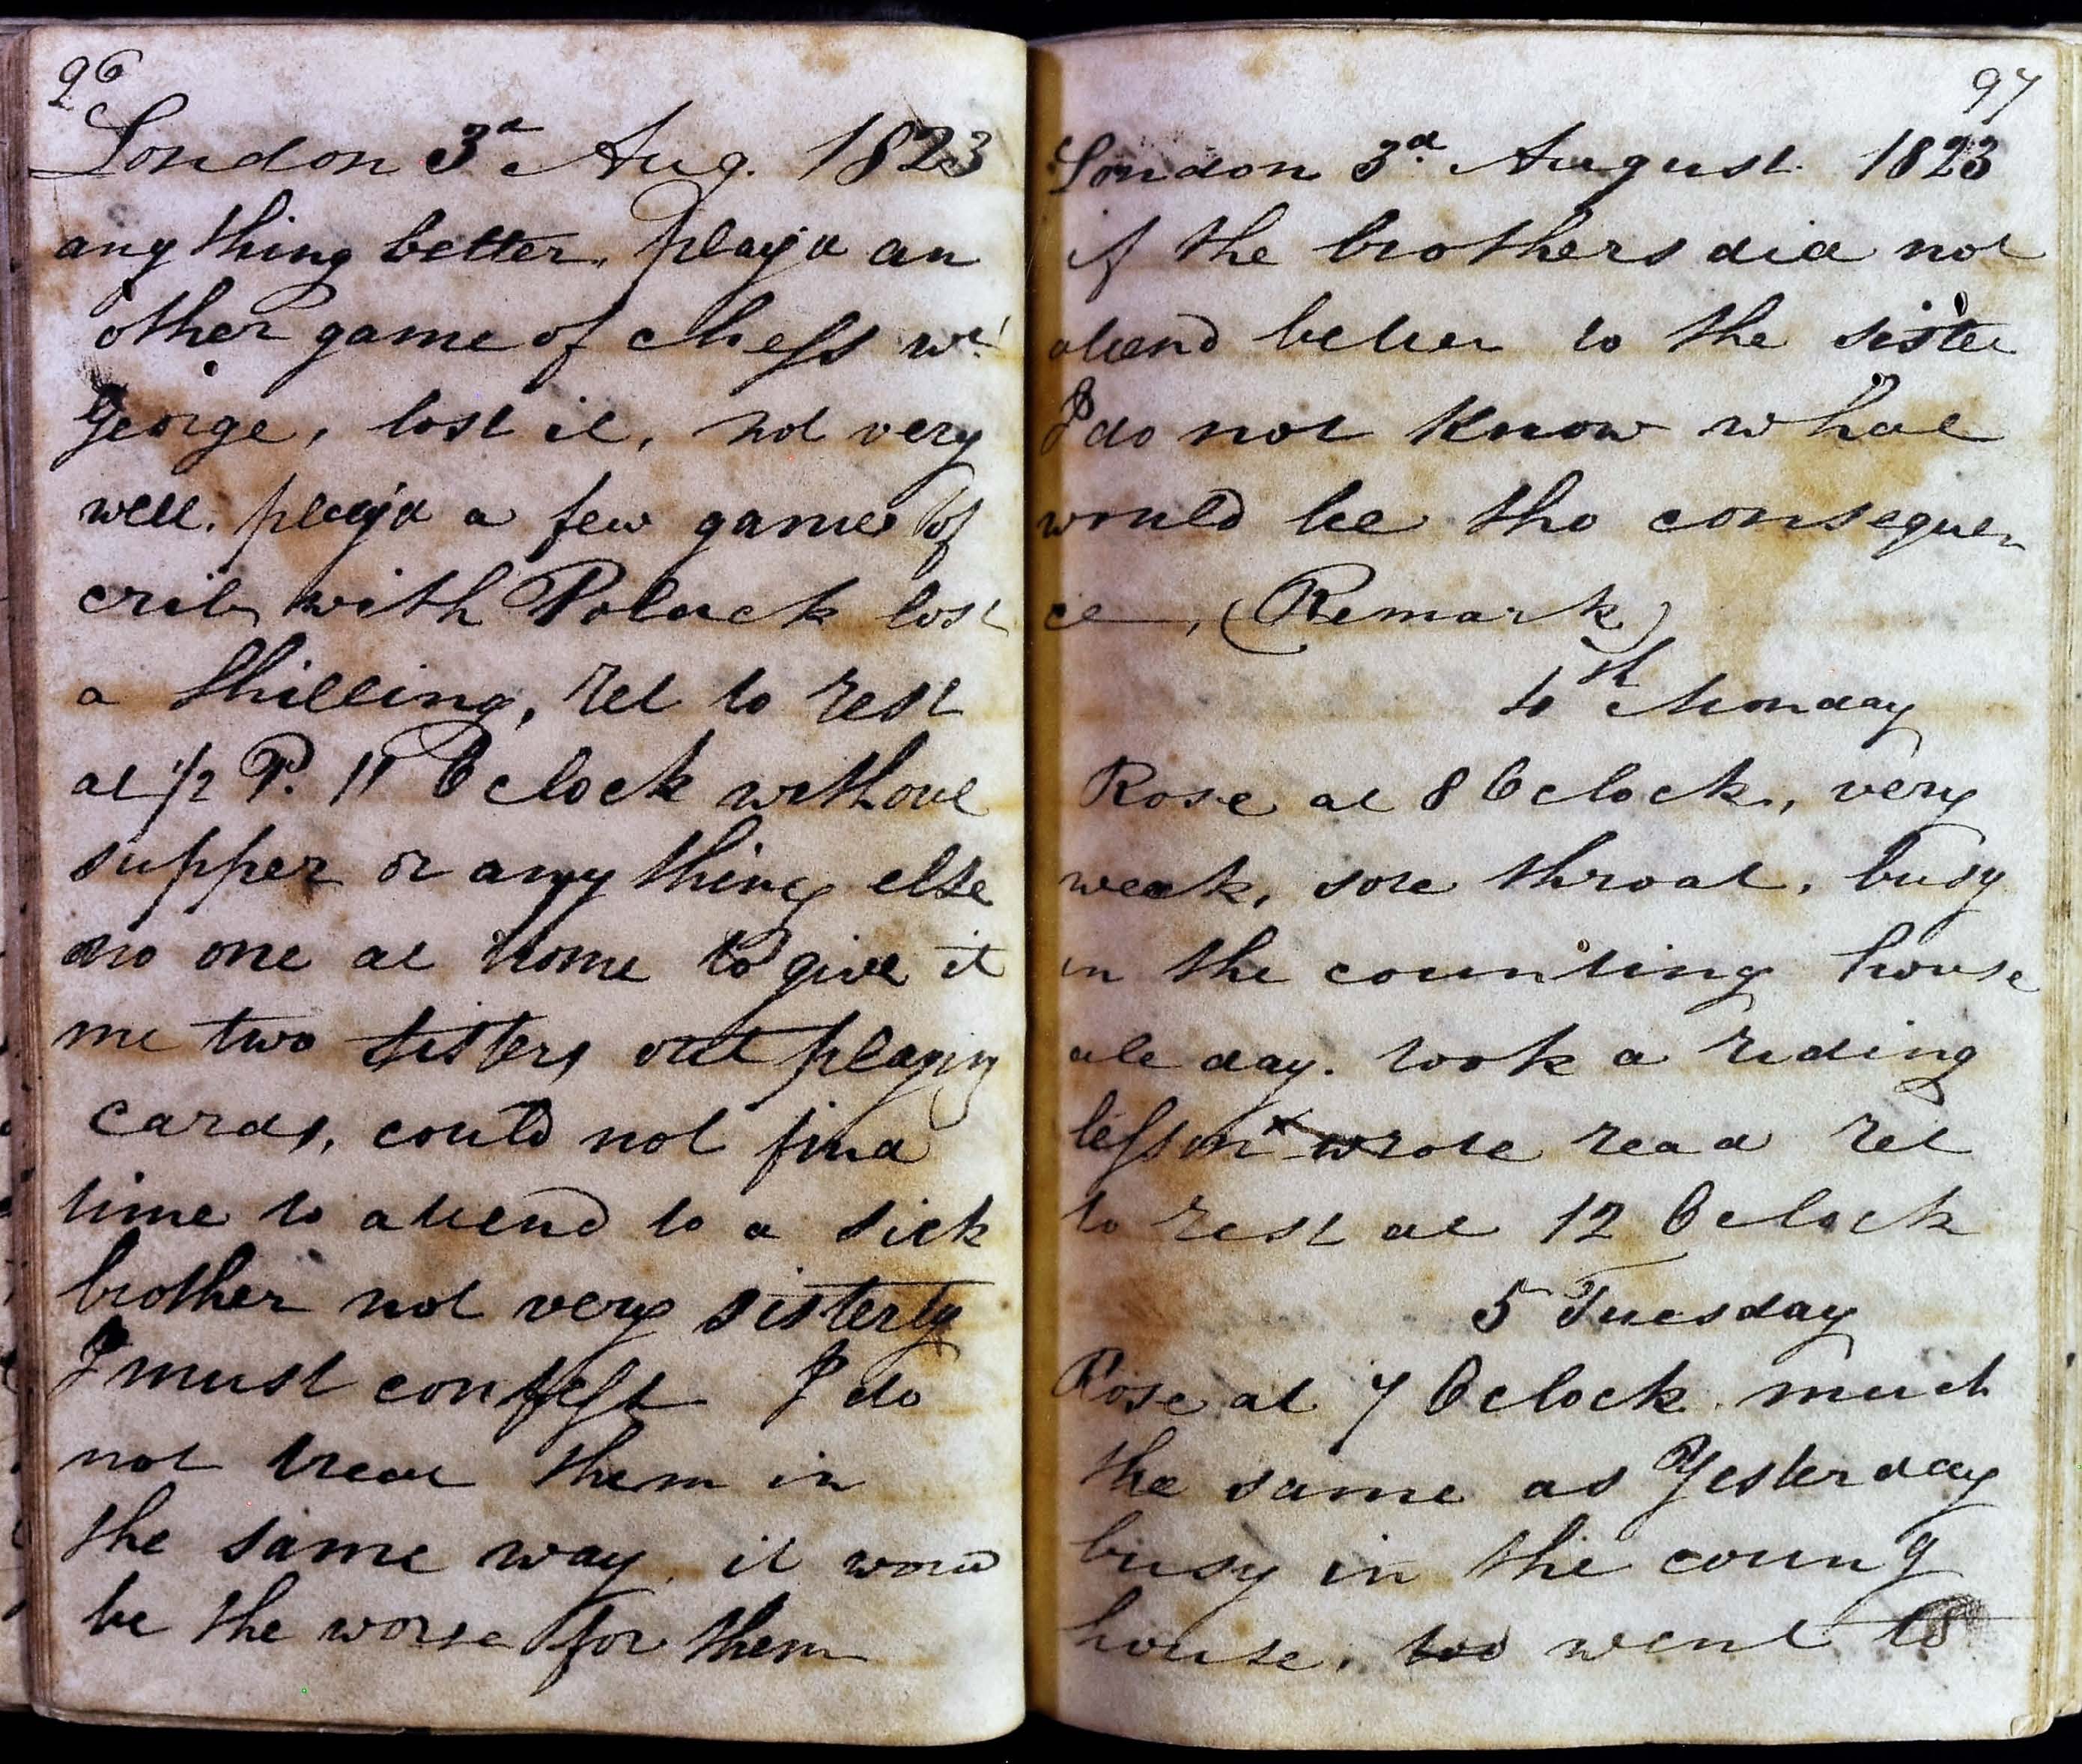 96
London 3d Aug. 1823
any thing better, play'd an
other game of chess wt
George, lost it, not very
well. play'd a few games of
crib with Polack lost
a shilling, ret to rest
at 1/2 P. 11 OClock without
supper or any thing else
no one at home to give it
me two sisters out playing
cards, could not find
time to attend to a sick
brother not very sisterly
I must confess I do
not treat them in
the same way, it would
be the worse for them
97
London 3d August 1823
if the brothers did not
attend better to the sister
I do not know what
would be the consequen
ce, (Remark)
4th Monday
Rose at 8 OClock, very
weak, sore throat, busy
in the counting house
all day. took a riding
lesson wrote read ret
to rest at 12 OClock
5 Tuesday
Rose at 7 OClock much
the same as Yesterday
busy in the coung
house, too went to